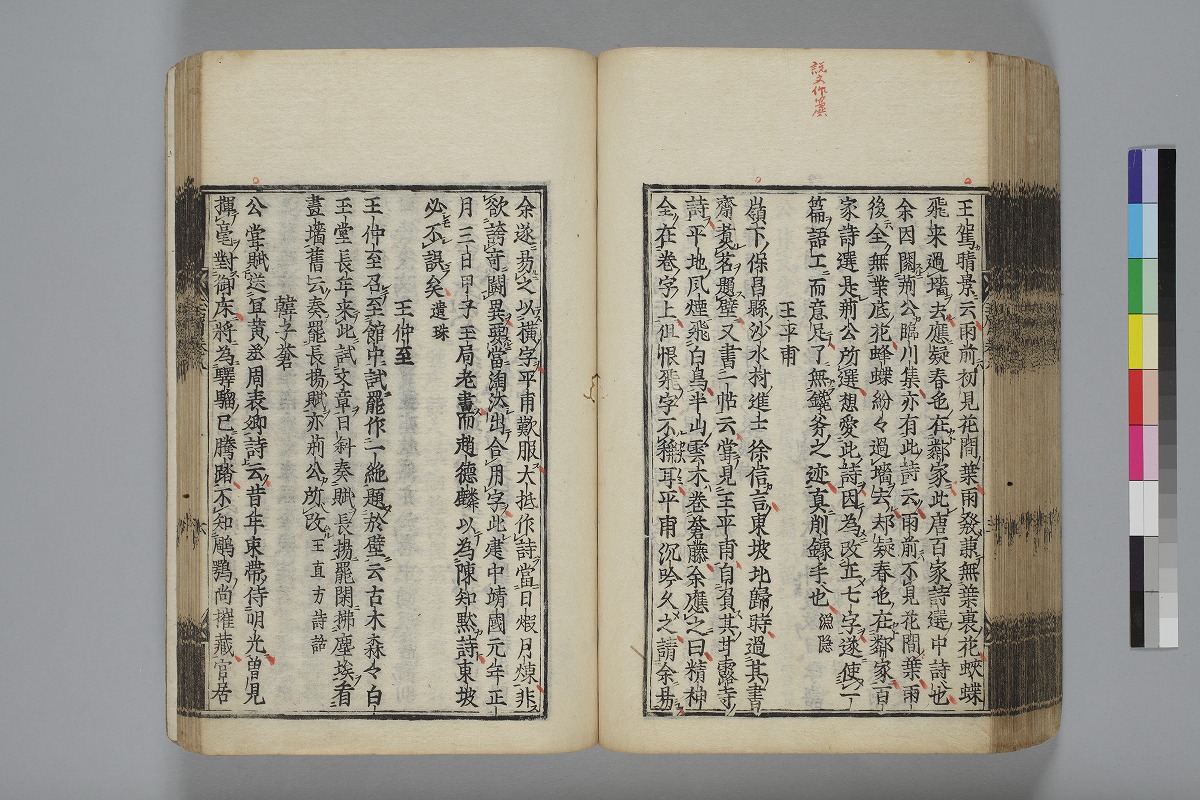 説文作籑
王駕晴景云雨前初見花間葉雨後兼無葉裏花蛺蝶
飛来過墻去應疑春色在鄰家此唐百家詩選中詩也
余因閱荊公臨川集亦有此詩云雨前不見花間葉雨
後全無葉底花蜂蝶紛々過墻去却疑春色在鄰家百
家詩選是荊公所選想愛此詩因為改正七字遂使一
篇語工而意足了無鑱斧之迹真削鐻手也 漁隠
王平甫
嶺下保昌縣沙水村進士徐信言東坡北歸時過其書
齋煮茗題壁又書一帖云嘗見王平甫自負其甘露寺
詩平地風煙飛白鳥半山雲木巻蒼藤余應之曰精神
全在巻字上但恨飛字不稱耳平甫沉吟久之請余易
余遂易之以横字平甫歎服大抵作詩當日煅月煉非
欲誇奇闘異要當淘汰出合用字此建中靖國元年正
月三日甲子玉局老書而趙德麟以為陳知黙詩東坡
必不誤矣 遺珠
王仲至
王仲至召至館中試罷作一絶題於壁云古木森々白
玉堂長年来此試文章日斜奏賦長揚罷閑拂塵埃看
畫墻舊云奏罷長揚賦亦荊公所改 王直方詩話
韓子蒼
公嘗賦送冝黄丞周表卿詩云昔年束帶侍明光曽見
揮毫對御床將為驊騮已騰踏不知鵰鶚尚摧藏官居